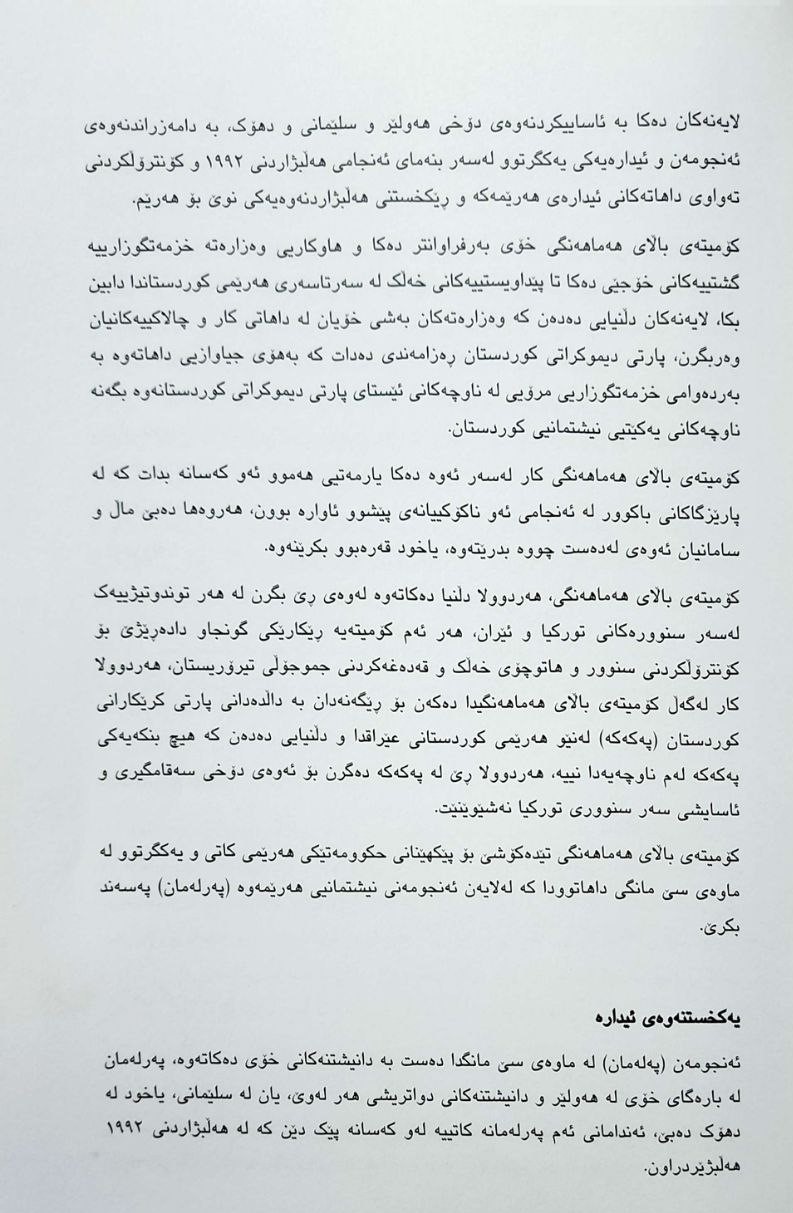 لایەنەکان دەکا بە ئاساییکردنەوەی دۆخی هەولێر و سلێمانی و دهۆک، بە دامەزراندنەوەی
ئەنجومەن و ئیدارەیەکی یەکگرتوو لەسەر بنەمای ئەنجامی هەڵبژاردنی ١٩٩٢ و کۆنترۆڵکردنی
تەواوی داهاتەکانی ئیدارەی هەرێمەکە و ڕێکخستنی هەڵبژاردنەوەیەکی نوێ بۆ هەرێم.
کۆمیتەی باڵای هەماهەنگی خۆی بەرفراوانتر دەکا و هاوکاریی وەزارەتە خزمەتگوزارییە
گشتییەکانی خۆجێی دەکا تا پێداویستییەکانی خەڵک لە سەرتاسەری هەرێمی کوردستاندا دابین
بکا، لایەنەکان دڵنیایی دەدەن کە وەزارەتەکان بەشی خۆیان لە داهاتی کار و چالاکییەکانیان
وەربگرن، پارتی دیموکراتی کوردستان ڕەزامەندی دەدات کە بەهۆی جیاوازیی داهاتەوە بە
بەردەوامی خزمەتگوزاریی مرۆیی لە ناوچەکانی ئێستای پارتی دیموکراتی کوردستانەوە بگەنە
ناوچەکانی یەکێتیی نیشتمانیی کوردستان.
کۆمیتەی باڵای هەماهەنگی کار لەسەر ئەوە دەکا یارمەتیی هەموو ئەو کەسانە بدات کە لە
پارێزگاکانی باکوور لە ئەنجامی ئەو ناکۆکییانەی پێشوو ئاوارە بوون، هەروەها دەبێ ماڵ و
سامانیان ئەوەی لەدەست چووە بدرێتەوە، یاخود قەرەبوو بکرێنەوە.
کۆمیتەی باڵای هەماهەنگی، هەردوولا دڵنیا دەکاتەوە لەوەی ڕێ بگرن لە هەر توندوتیژییەک
لەسەر سنوورەکانی تورکیا و ئێران، هەر ئەم کۆمیتەیە ڕێکارێکی گونجاو دادەڕێژێ بۆ
کۆنترۆڵکردنی سنوور و هاتوچۆی خەڵک و قەدەغەکردنی جموجۆڵی تیرۆریستان، هەردوولا
کار لەگەڵ کۆمیتەی باڵای هەماهەنگیدا دەکەن بۆ ڕێگەنەدان بە داڵدەدانی پارتی کرێکارانی
کوردستان (پەکەکە) لەنێو هەرێمی کوردستانی عێراقدا و دڵنیایی دەدەن کە هیچ بنکەیەکی
پەکەکە لەم ناوچەیەدا نییە، هەردوولا ڕێ لە پەکەکە دەگرن بۆ ئەوەی دۆخی سەقامگیری و
ئاسایشی سەر سنووری تورکیا نەشێوێنێت.
کۆمیتەی باڵای هەماهەنگی تێدەکۆشێ بۆ پێکهێنانی حکوومەتێکی هەرێمی کاتی و یەکگرتوو لە
ماوەی سێ مانگی داهاتوودا کە لەلایەن ئەنجومەنی نیشتمانیی هەرێمەوە (پەرلەمان) پەسەند
بکرێ.
یەکخستنەوەی ئیدارە
ئەنجومەن (پەلەمان) لە ماوەی سێ مانگدا دەست بە دانیشتنەکانی خۆی دەکاتەوە، پەرلەمان
لە بارەگای خۆی لە هەولێر و دانیشتنەکانی دواتریشی هەر لەوێ، یان لە سلێمانی، یاخود لە
دهۆک دەبێ، ئەندامانی ئەم پەرلەمانە کاتییە لەو کەسانە پێک دێن کە لە هەڵبژاردنی ١٩٩٢
هەڵبژێردراون.